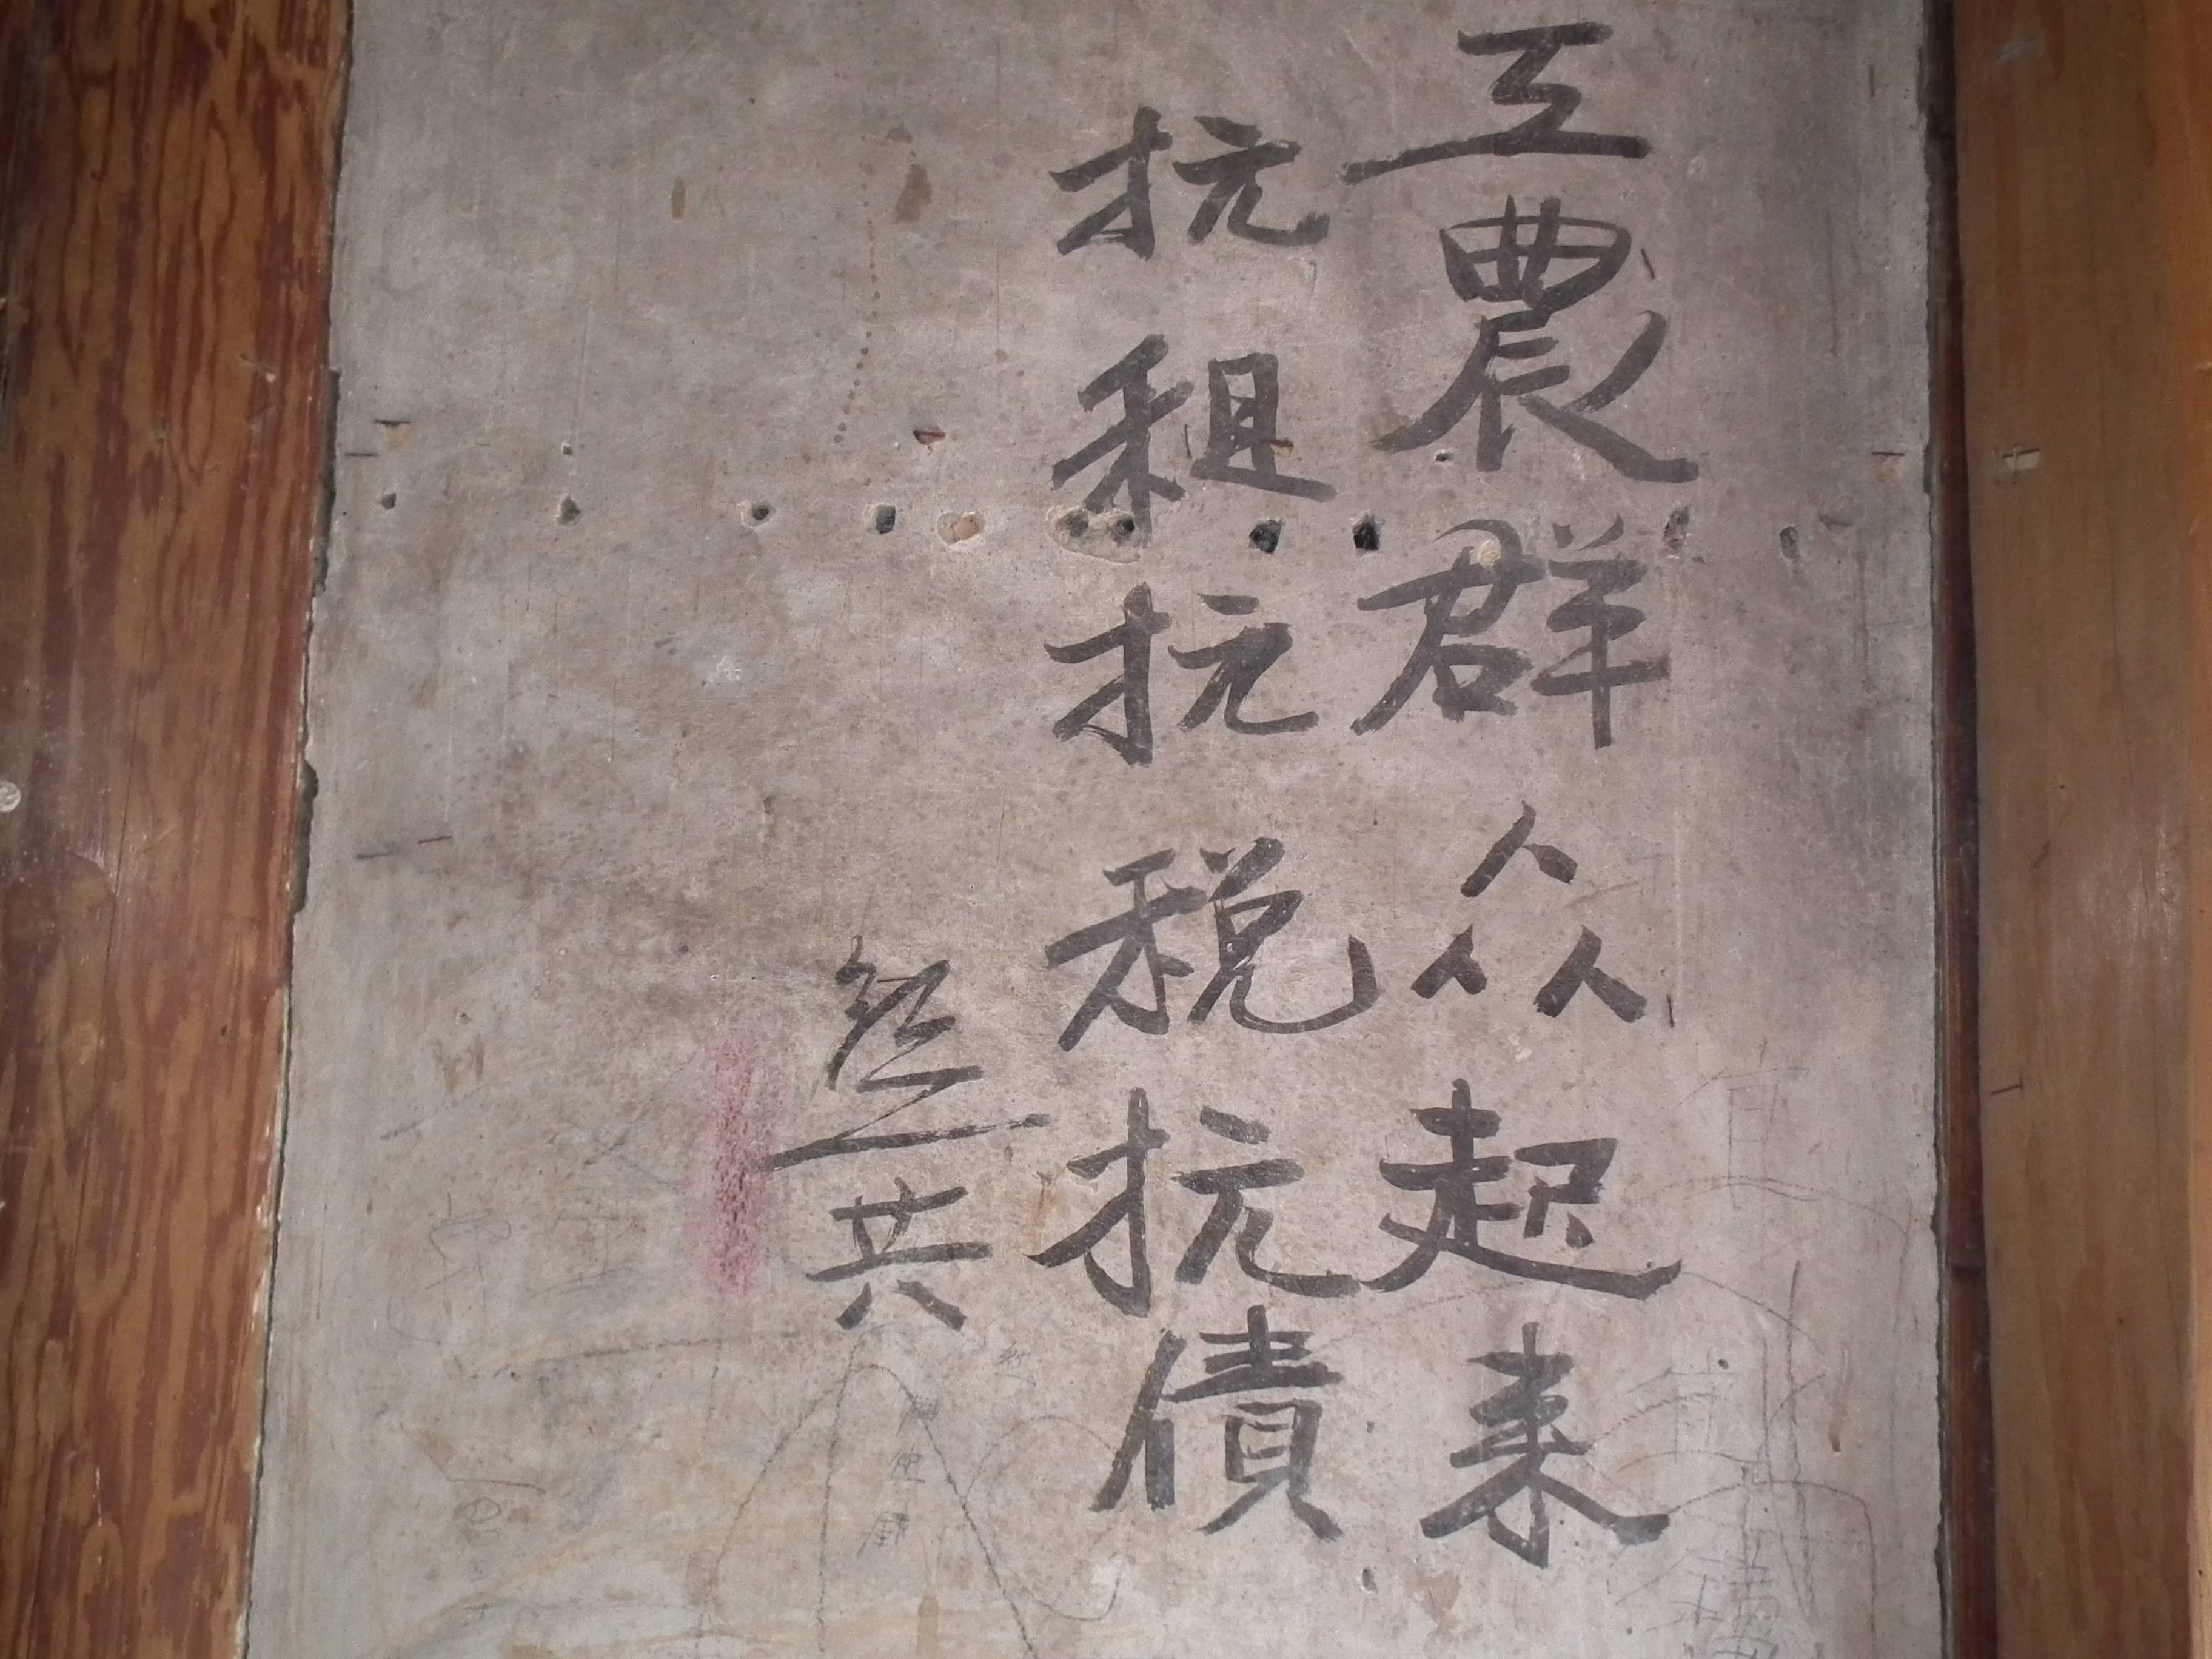 工農群众起来
抗租抗税抗債
共